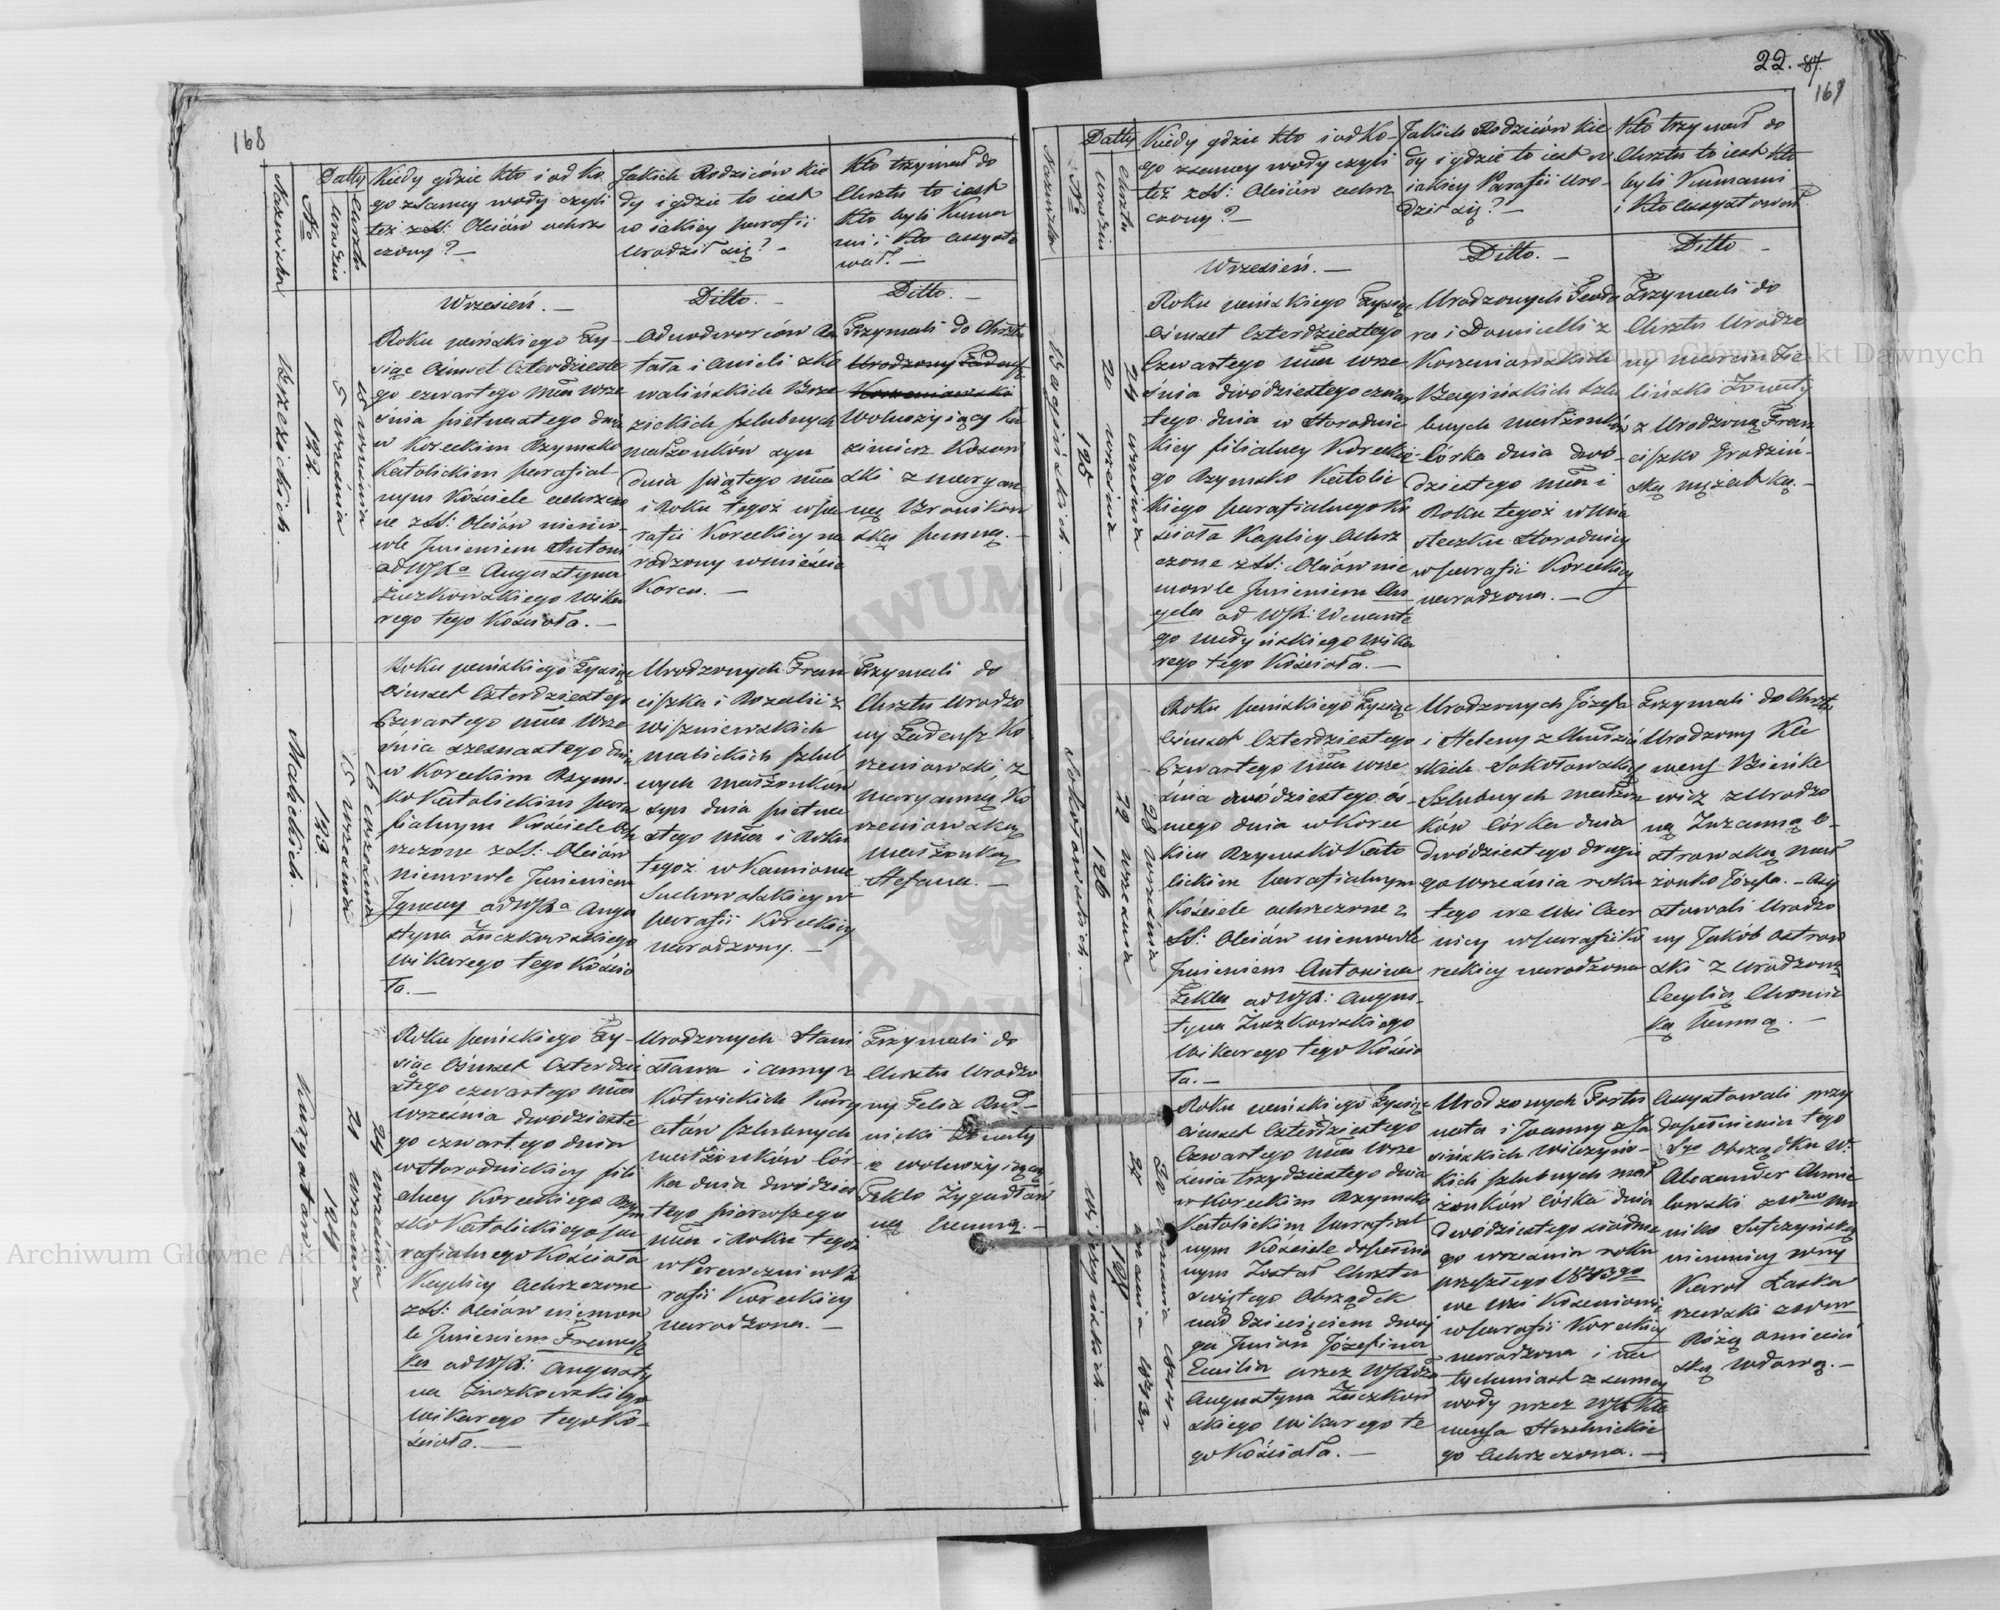 168
Nazwiska
No
Datty
urodzin
Chrztu
Kiedy gdzie kto i od ko
go z samey wody czyli
też z SS: Oleiów ochrz
czony? —
Jakich Rodziców kie
dy i gdzie to iest
w iakiey parafii
urodził się? —
Kto trzymał do
Chrztu to iest
kto byli Kuma
mi i kto assysto
wał. —
Wrzesień. —
Ditto. —
Ditto. —
Brzezickich. —
122. —
5 września
15 września
Roku pańskiego Ty-
siąc Ośmset Czterdzieste
go czwartego mca wrze
śnia pietnastego dnia
w Koreckim Rzymsko
Katolickim parafial
nym Kościele ochrzczo
ne z SS: Oleiów niemo-
wle Imieniem Antoni
od WJXa Augustyna
Żuczkowskiego wika
rego tego Kościoła. —
walińskich Brze
zickich szlubnych
małżonków syn
dnia piątego mca
i Roku tegoż w pa
rafii Koreckiey na
rodzony w mieście
Korcu. —
Trzymali do Chrztu
Urodzony Tadeusz
Korzeniowski
z Maryan
ną
panną. —
123. —
15 września
16 września
Roku pańskiego Tysiąc
Ośmset Czterdziestego
Czwartego mca Wrze
śnia szesnastego dnia
w Koreckim Rzyms-
ko Katolickim para
fialnym Kościele Och
rzczone z SS: Oleiów
niemowle Imieniem
Ignacy od WJXa Augu
styna Żuczkowskiego
Wikarego tego Kościo
ła. —
Urodzonych Fran
ciszka i Rozalii z
Wiszniewskich
malickich szlub
nych małżonków
syn dnia pietna
stego mca i Roku
tegoż w Kamionce
Suchowolskiey w
parafii Koreckiey
narodzony. —
Trzymali do
Chrztu Urodzo
ny Tadeusz Ko
rzeniowski z
Maryanną Ko
rzeniowską
małżonką
Stefana. —
124
21 września
24 września
Roku pańskiego Ty-
siąc Ośmset Czterdzie
stego czwartego mca
września dwódzieste
go czwartego dnia
w Horodnickiey fili
alney Koreckiego Rzym
sko Katolickiego pa
rafialnego Kościoła
Kaplicy Ochrzczone
z SS: Oleiów niemow
le Imieniem Francisz
ka od WJX: Augusty
na Żuczkowskiego
wikarego tego Ko-
ścioła. —
Urodzonych Stani
sława i Anny z
Kotwickich
szlubnych
małżonków Cór-
ka dnia dwódzies
tego pierwszego
mca i Roku tegoż
w Pa
rafii Koreckiey
narodzona. —
Trzymali do
Chrztu Urodzo
ny Felix Rud-
nicki
Teklo
ną panną. —
22. 87.
169
Nazwiska
No
Datty
Urodzin
Chrztu
Kiedy gdzie kto i od Ko-
go z samey wody czyli
też z SS: Oleiów ochrz
czony? —
Jakich Rodziców kie
dy i gdzie to iest w
iakiey Parafii Uro-
dził się? —
Kto trzymał do
Chrztu to iest kto
byli Kumami
i kto assystował
Wrzesień. —
Ditto. —
Ditto —
125
20 września
24 września
Roku pańskiego Tysiąc
Ośmset Czterdziestego
Czwartego mca wrze
śnia dwódziestego czwar
tego dnia w Horodnic
kiey filialney Koreckie-
go Rzymsko Katolic
kiego parafialnego Ko
ścioła Kaplicy Ochrz
czone z SS: Oleiów nie
mowle Imieniem An
gela od WJX: Wincente
go wika
rego tego Kościoła. —
Urodzonych Teodo
ra i Domicelli z
Korzeniowskich
szlu
bnych małżonków
Córka dnia dwó-
dziestego mca i
Roku tegoż w mia
steczku Horodnicy
w parafii Koreckiey
narodzona. —
Trzymali do
Chrztu Urodzo
ny Marcin Zie
liński
z Urodzoną Fran
ciszko Grodziń-
ską mężatką. —
Sokołowskich. —
126
22 września
28 września
Roku pańskiego Tysiąc
Ośmset Czterdziestego
Czwartego mca wrze
śnia dwódziestego ós-
mego dnia w Korec
kim Rzymsko Kato
lickim parafialnym
Kościele ochrzczone z
SS: Oleiów niemowle
Imieniem Antonina
Tekla od WJX: Augus-
tyna Żuczkowskiego
Wikarego tego Kościo
ła. —
Urodzonych Józefa
i Heleny z
skich Sokołowskich
Szlubnych małżon
ków Córka dnia
dwódziestego drugie
go września roku
tego we wsi Czer
nicy w parafii Ko
reckiey narodzona
Trzymali do Chrztu
Urodzony Kle
mens Binke
wicz z Urodzo
ną Zuzanną O-
strowską mał
żonko Józefa. — Assy
stowali Urodzo
ny Jakób Ostrow
ski z Urodzoną
Cecylią
panną. —
30 września 1844 r
27 września 1843 r
Roku pańskiego Tysiąc
Ośmset Czterdziestego
Czwartego mca Wrze
śnia trzydziestego dnia
w Koreckim Rzymsko
Katolickim parafial
nym Kościele dopełnio
nym został Chrztu
Świętego Obrządek
nad dziecięciem dwoy
ga Imion Józefina
Emilia przez WJXdza
Augustyna Żuczkow
skiego wikarego te
go Kościoła. —
Urodzonych Fortu
nata i Joanny z Ja
sińskich Wilczyńs-
kich szlubnych mał
żonków Córka dnia
dwódziestego siódme
go września roku
przeszłego 1843go
we wsi
w parafii Koreckiey
narodzona i na
tychmiast z samey
wody przez WJX Kle
mensa
go Ochrzczona. —
Assystowali przy
dopełnieniu tego
Sgo Obrządku W:
Alexander Chmie
lowski
Karol Laska
rzewski
Różą
ską wdową. —
Archiwum Główne Akt Dawnych
Archiwum Główne Akt Dawnych